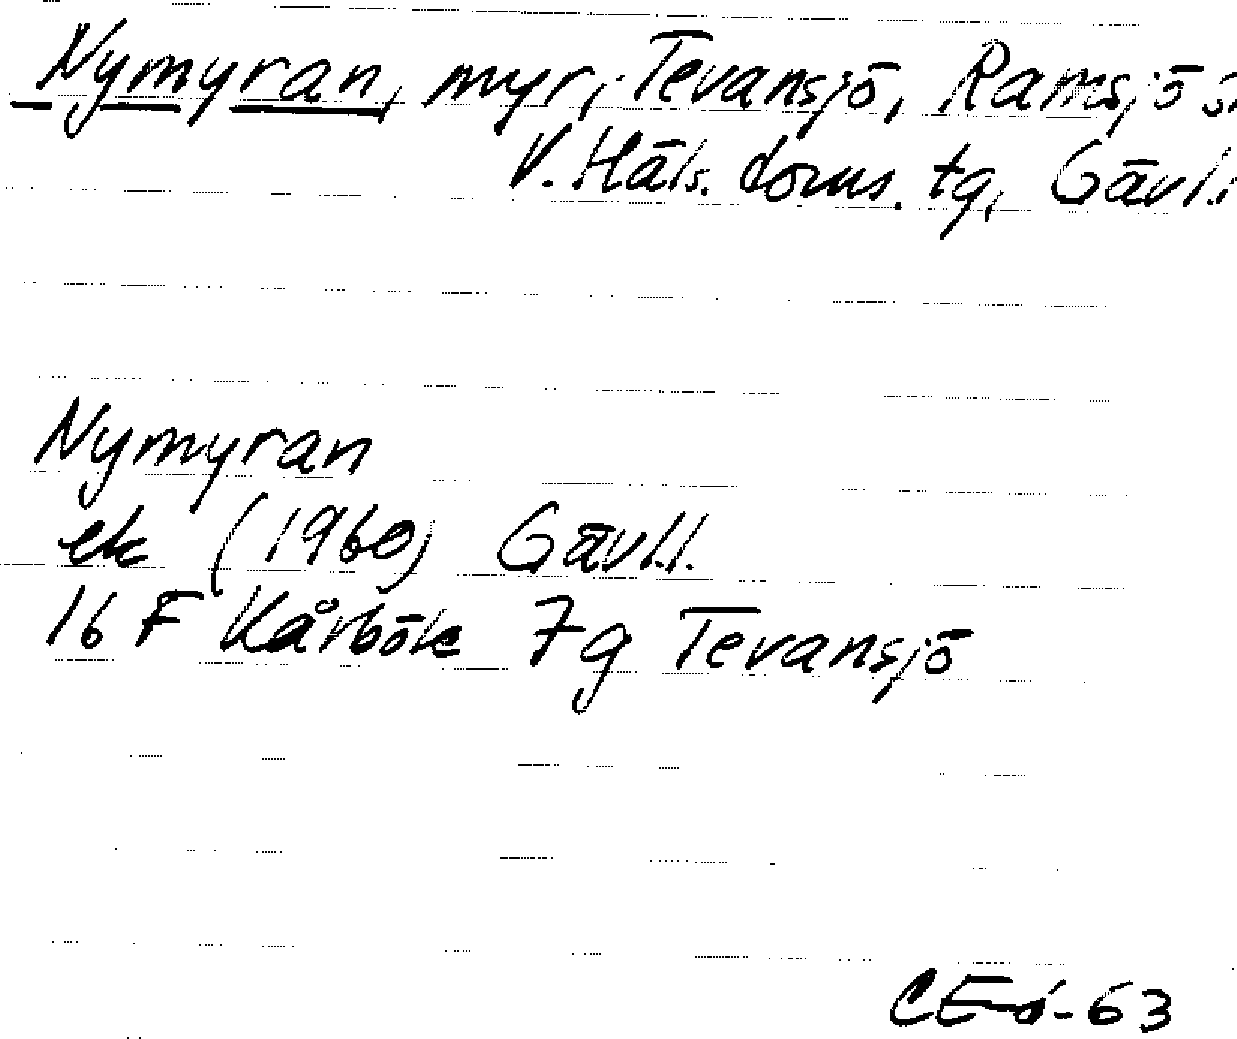 Nymyran, myr, Tevansjö, Ramsjö s.
V. Häls. doms. tg, Gävl.
Nymyran
ek (1960) Gävl.l.
16 F Kårböle 7g Tevansjö
CEö-63